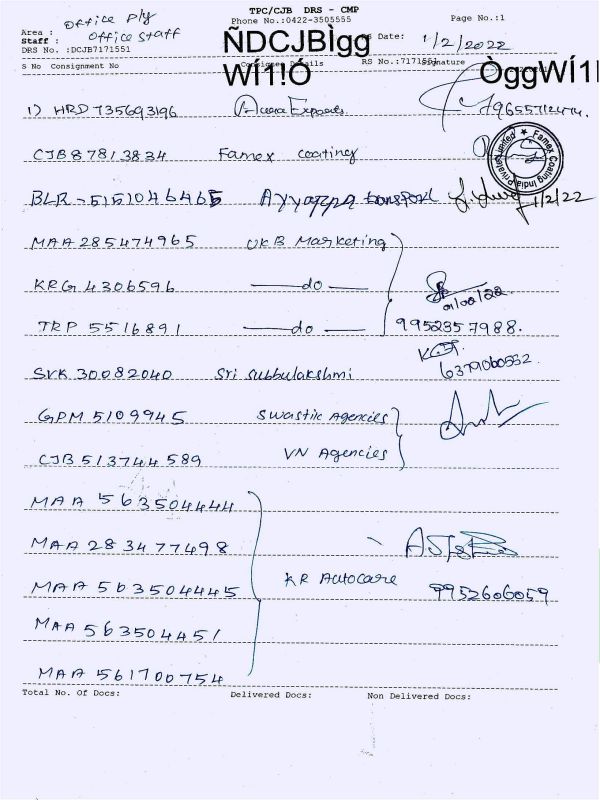 TPC/CJB DRS - CMP
Phone No.:0422-3505555 Page No.:1
Area : office Ply
Staff : office staff
DRS No. :DCJB7171551
ÑDCJBÌgg
WÍ1!Ó
Date: 1/2/2022
RS No.:7171551
ÒggWÍ1!
S No Consignment No Consignee Details Signature
1) HRD 735693196 Accra Exports
CJB 87813834 Famex coating
Famex Coating India Private Limited
BLR - 5151046465 Ayyappa transport 1/2/22
MAA 285474965 UKB Marketing
KRG 4306596 — do — 01/02/22
TRP 5516891 — do — 9952357988.
SVK 30082040 Sri subbulakshmi 6379060552.
GPM 5109945 Swastik Agencies
CJB 513744589 VN Agencies
MAA 563504444
MAA 283477498
MAA 563504445 KR Autocare 9952606059
MAA 563504451
MAA 561700754
Total No. Of Docs: Delivered Docs: Non Delivered Docs: